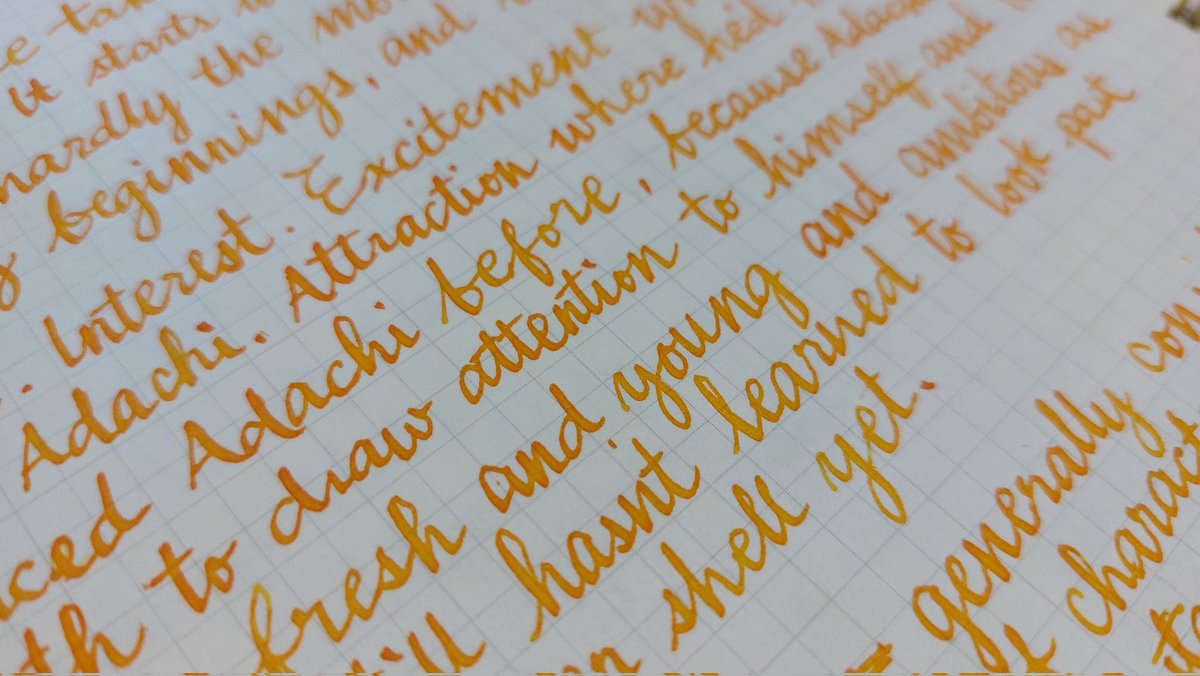 it starts
the
beginnings, and
Interest. Excitement
Adachi. Attraction where he'd
Adachi before, because Adachi
to draw attention to himself and
fresh and young and ambitous as
hasn't learned to look past
shell yet.
generally